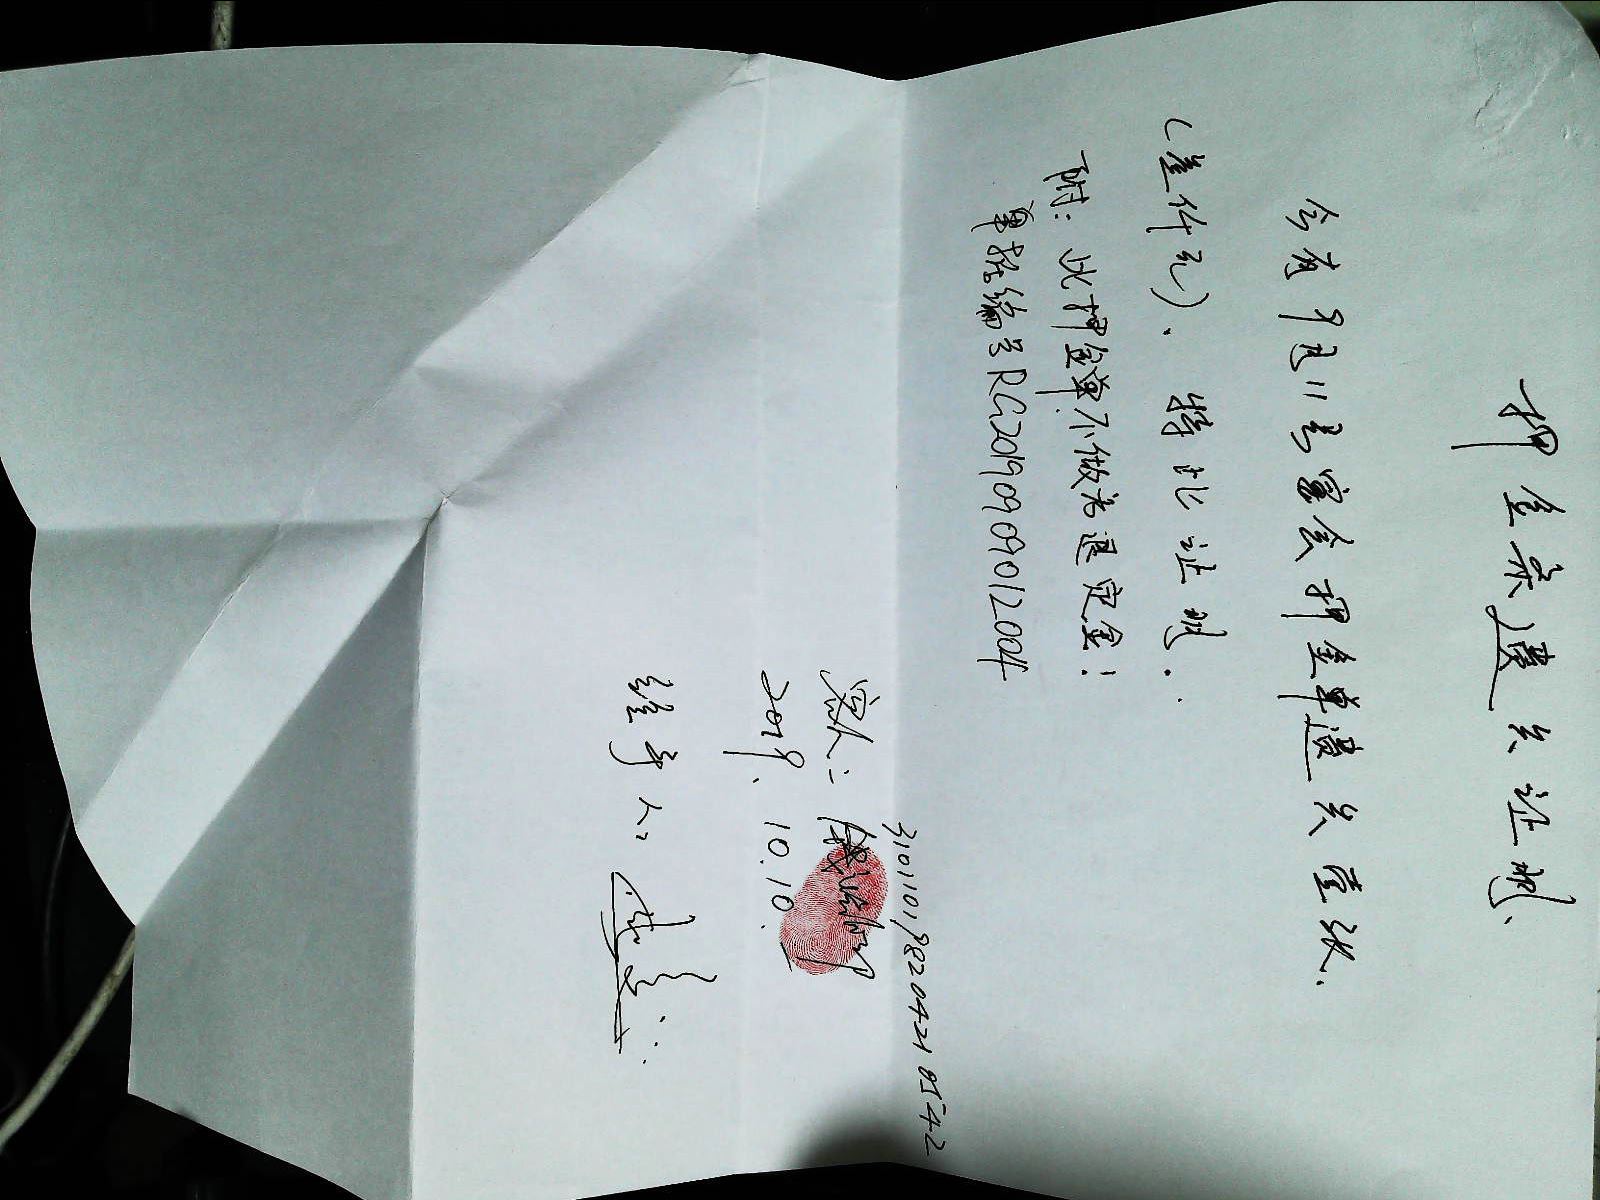 押金条遗失证明.
今有9月11号宴会押金单遗失壹张.
(叁仟元)、特此证明..
附:此押金单不做为退定金!
单据编号RC20190909012004
310110198204210542
客人:
2019.10.10.
经手人: